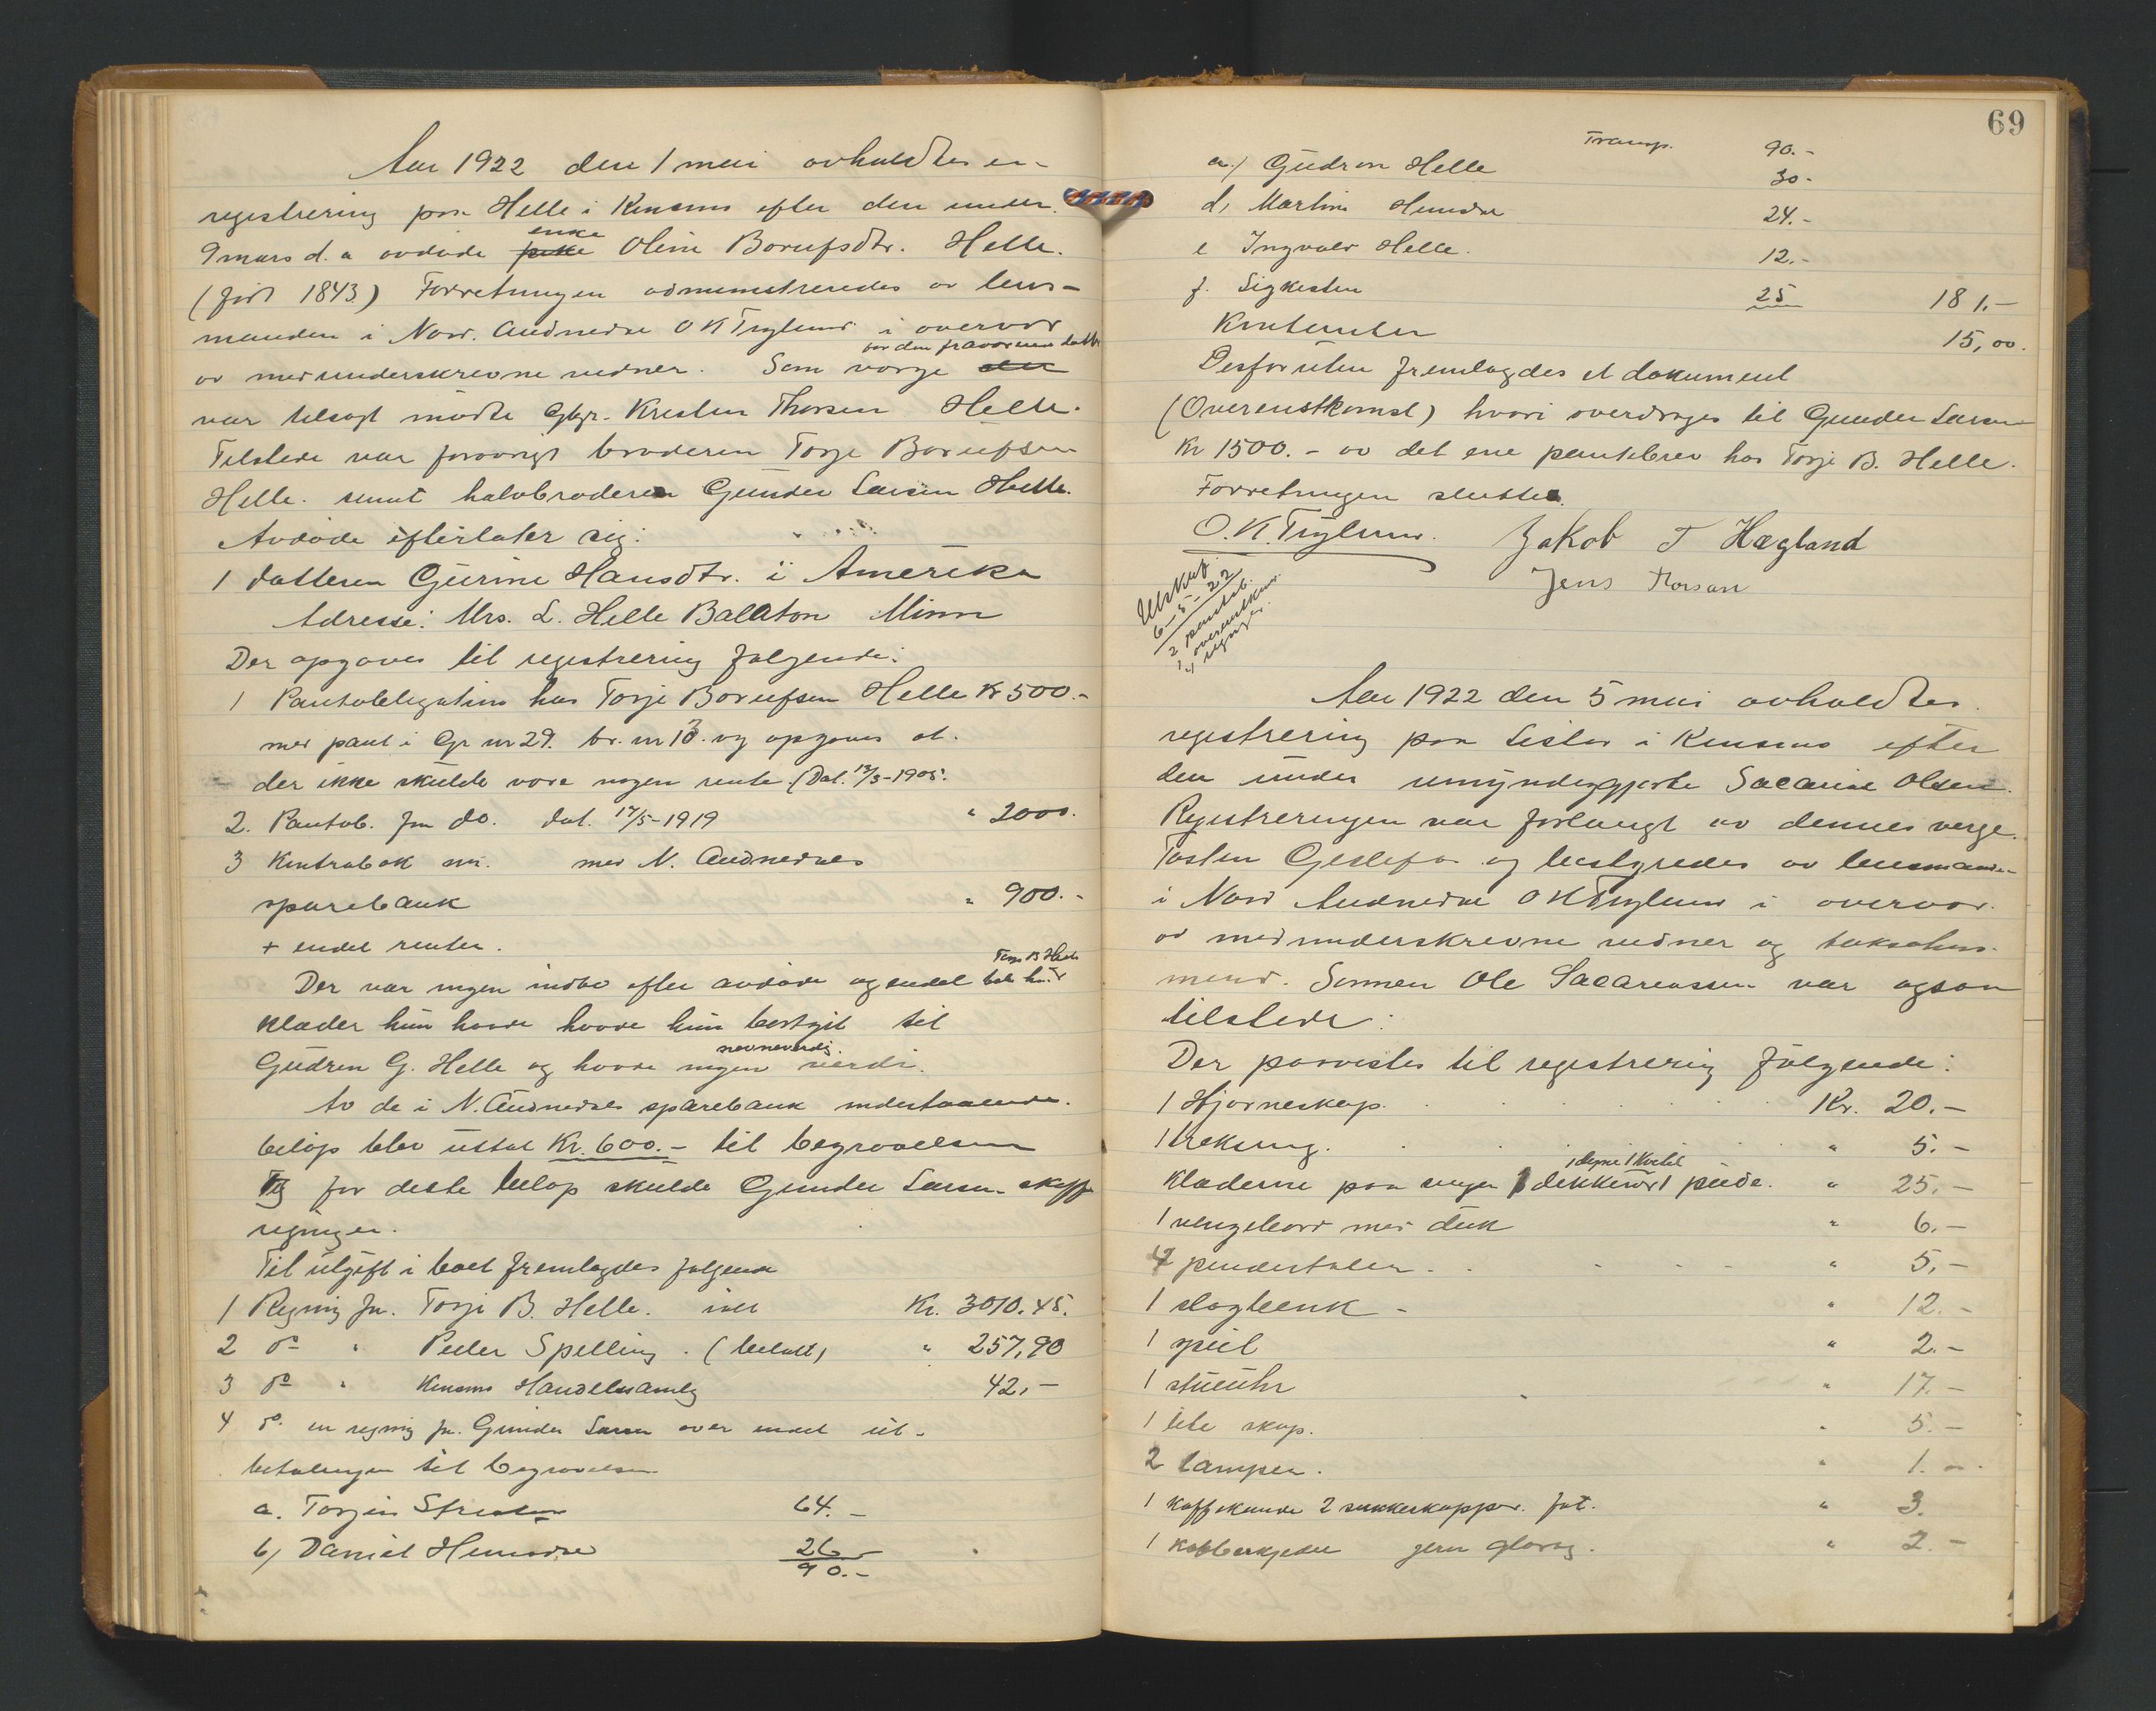 Aar 1922 den 1 mai avholdtes en
registrering paa Helle i Kinsms efter den under
9 mars d. a avdøde enke Oline Borufsdtr. Helle.
(født 1843) Forretningen administreredes av lens-
manden i Nord. Audnedal O K Tryland i overvær
av medunderskrevne vidner. Som værge for den fraværende datter
var tilsagt møtte Gbr. Kristen Thorsen Helle.
Tilstede var forøvrigt broderen Torje Borufsen
Helle. samt halvbroderen Gunder Larsen Helle.
Avdøde efterlater sig:
1 datteren Gurine Hansdtr. i Amerika
Adresse: Mrs. L. Helle Balaton Minn
Der opgaves til registrering følgende:
1 Pantobligation hos Torje Borufsen Helle Kr 500.-
med pant i Gr nr 29. br. nr 13. og opgaves at
der ikke skulde være nogen rente (Dat. 12/5-1905.
2. Pantob. fra do. dat. 17/5-1919 " 2000.
3 Kontrabok nr. med N. Audnedals
sparebank " 900.-
+ endel renter.
Der var ingen indbo efter avdøde og endel
klæder hun havde havde hun bortgit til
Gudrun G. Helle og havde ingen nævneværdig værdi.
Av de i N. Audnedals sparebank indestaaende
beløp blev uttat Kr. 600.- til begravelsen
og for dette beløp skulde Gunder Larsen skaffe
regninger.
Til utgift i boet fremlagdes følgende
1 Regning fr. Torje B. Helle. Kr. 3010.45.
2 do " Peder Spelling. (betalt) " 257,90
3 do " Kinsms Handelssamlg 42,-
4 do. en regning fr. Gunder Larsen over endel ut-
betalinger til begravelsen
a. Torjus 64.-
b) Daniel Hunsdal 26
90.-
69
Transp. 90.-
c.) Gudrun Helle 30-
d, Martin Hunsdal 24.-
e Ingvald Helle. 12.-
f. Ligkisten 25 181.-
Kontanter 15,00.
Desforuten fremlagdes et dokument
(Overenskomst) hvori overdrages til Gunder Larsen
Kr 1500.- av det ene pantebrev hos Torje B. Helle.
Forretningen sluttet.
O. K. Tryland. Jakob T Hægland
Jens Thorsen
Utskrift
6-5-22
2 pantob.
1 overenskom.
4 regninger.
Aar 1922 den 5 mai avholdtes
registrering paa i Kinsms efter
den under umyndiggjorte Sacarias Olsen.
Registreringen var forlangt av dennes verge
Tosten og bestyredes av lensmanden
i Nord Audnedal O K Tryland i overvær
av medunderskrevne vidner og takstmenn-
mend. Sønnen Ole Sacariassen var ogsaa
tilstede:
Der paavistes til registrering følgende:
1 Hjørneskap. Kr. 20.-
1 træksæng. " 5.-
Klæderne paa sengen 1 dyne 1 kvitel 1 pude. " 25.-
1 vengebord med duk " 6.-
4 pindestoler. " 5,-
1 slagbenk - " 12.-
1 speil " 2.-
1 stueuhr " 17.-
1 lite skap. " 5.-
2 lamper. " 1.-
1 Kaffekande 2 sukkerkopper. fat. " 3.
1 Kobberkjedel " 2.-